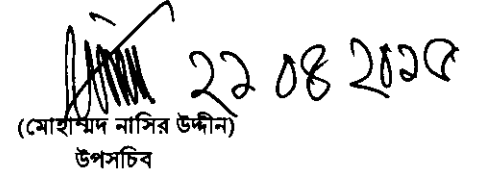 ২১ ০৪ ২০১৫
(মোহাম্মদ নাসির উদ্দীন)
উপসচিব